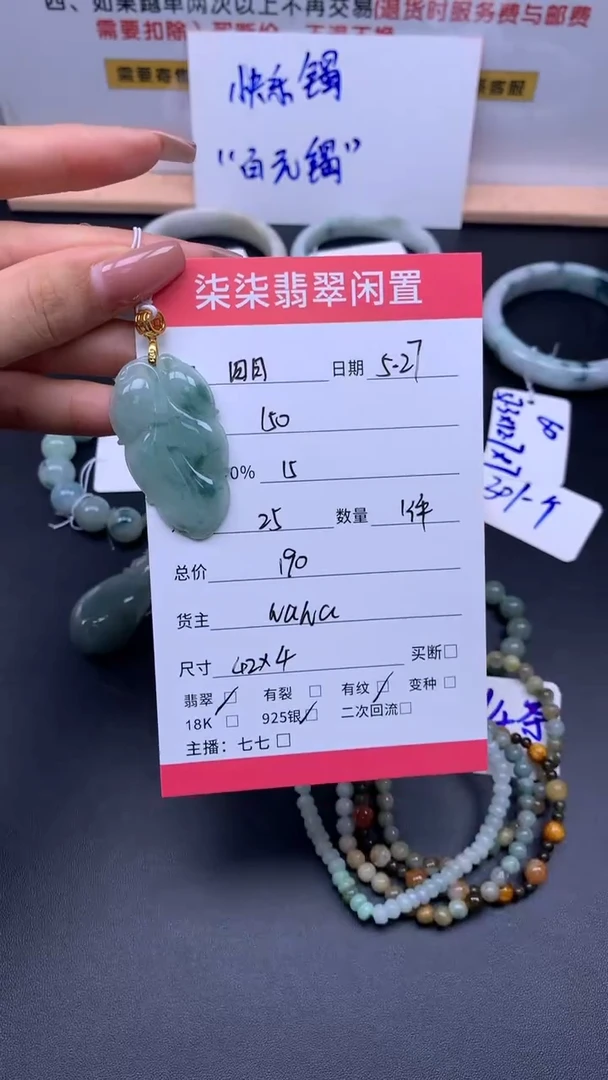 四、如果跑单两次以上不再交易(退货时服务费与邮费
需要扣除)买断价，不退不换
需要寄售
客服
快乐镯
“百元镯”
柒柒翡翠闲置
日期 5-27
150
0% 15
25 数量 1件
总价 190
货主 wawa
尺寸 42×4 买断□
翡翠☑ 有裂□ 有纹☑ 变种□
18K□ 925银☑ 二次回流□
主播：七七□